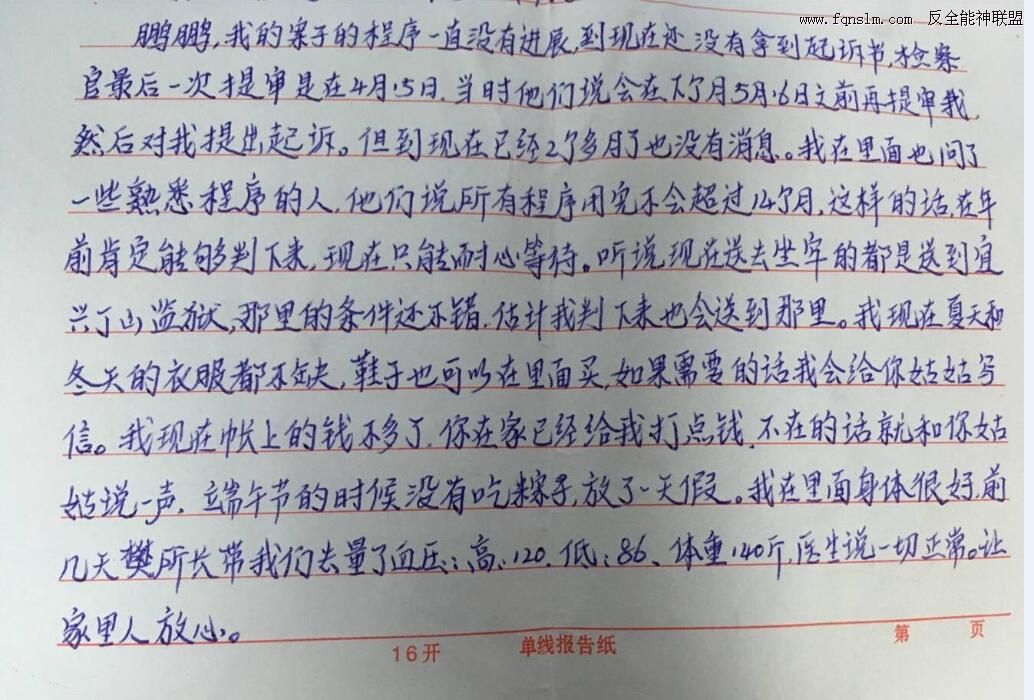 www.fqnslm.com 反全能神联盟
鹏鹏,我的案子的程序一直没有进展,到现在还没有拿到起诉书,检察
官最后一次提审是在4月15日.当时他们说会在下个月5月16日之前再提审我,
然后对我提出起诉。但到现在已经2个多月了也没有消息。我在里面也问了
一些熟悉程序的人,他们说所有程序用完不会超过14个月,这样的话,在年
前肯定能够判下来,现在只能耐心等待。听说现在送去坐牢的都是送到宜
兴丁山监狱,那里的条件还不错.估计我判下来也会送到那里。我现在夏天和
冬天的衣服都不缺,鞋子也可以在里面买,如果需要的话我会给你姑姑写
信。我现在帐上的钱不多了.你在家已经给我打点钱.不在的话就和你姑
姑说一声.端午节的时候没有吃粽子,放了一天假。我在里面身体很好,前
几天樊所长带我们去量了血压:高:120.低:86、体重140斤,医生说一切正常。让
家里人放心。
16开 单线报告纸 第 页